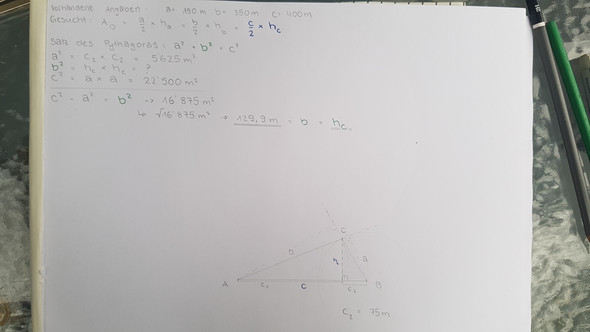 Vorhandene Angaben: a= 150m b= 350m c= 400m
Gesucht: A△ = a/2 × hₐ = b/2 × h_b = c/2 × h_c
Satz des Pythagoras: a² + b² = c²
a² = c₂ × c₂ = 5625m²
b² = h_c × h_c = ?
c² = a × a = 22'500m²
c² - a² = b² → 16'875m²
↳ √16'875m² → 129,9m = b = h_c
C
b
h
a
A
c₁
c
c₂
B
c₂ = 75m